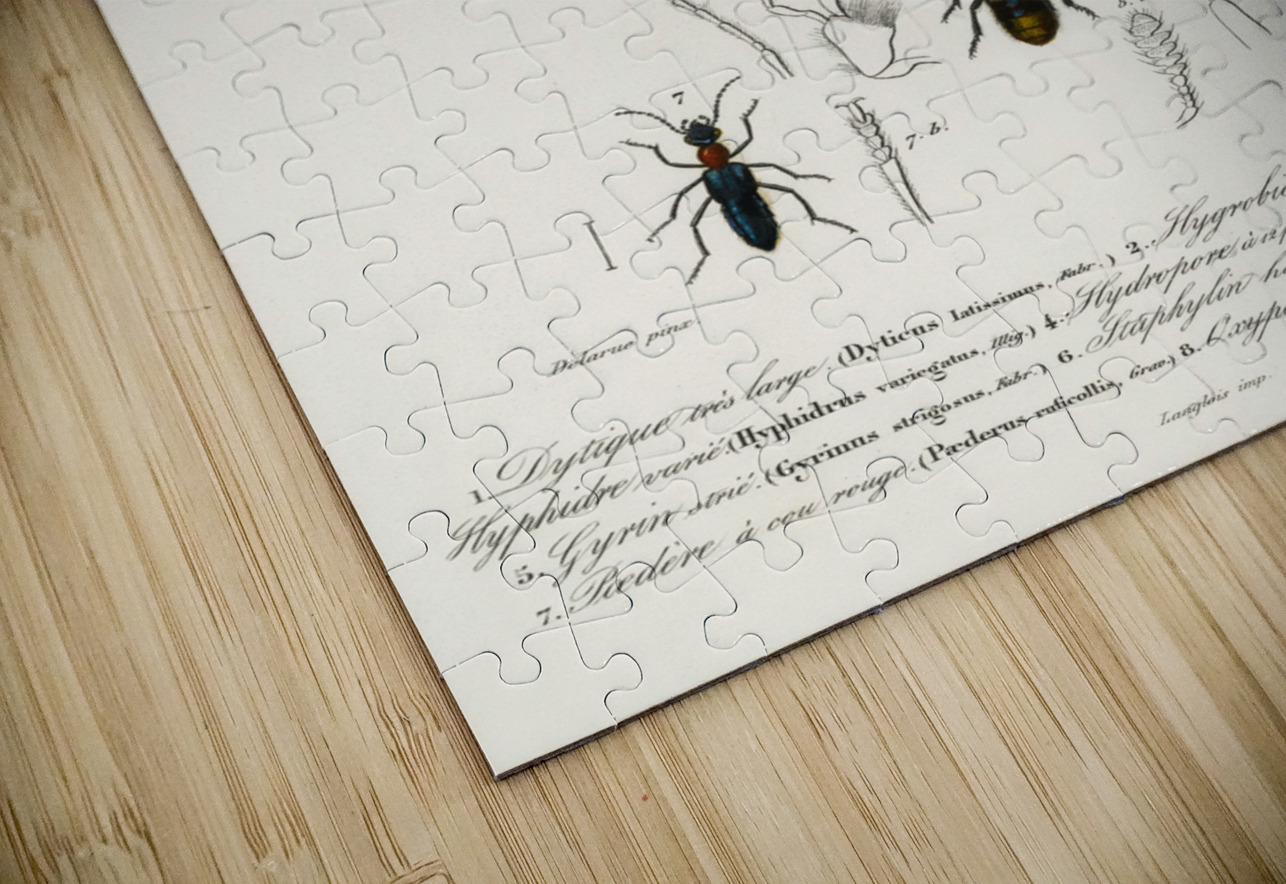 8.
7
7.b.
Delarue pinx
1. Dytique très large. (Dyticus latissimus, Fabr.) 2. Hygrobi
Hyphidre varié. (Hyphidrus variegatus, Illig.) 4. Hydropore, à 12
5. Gyrin strié. (Gyrinus strigosus, Fabr.) 6. Staphylin h
7. Pædère à cou rouge. (Pæderus ruficollis, Grav.) 8. Oxyp
Langlois imp.